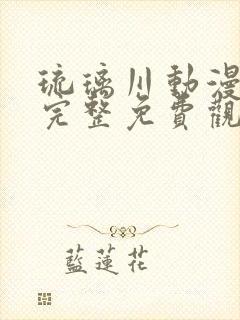 琉璃川動漫
完整免費觀
藍蓮花